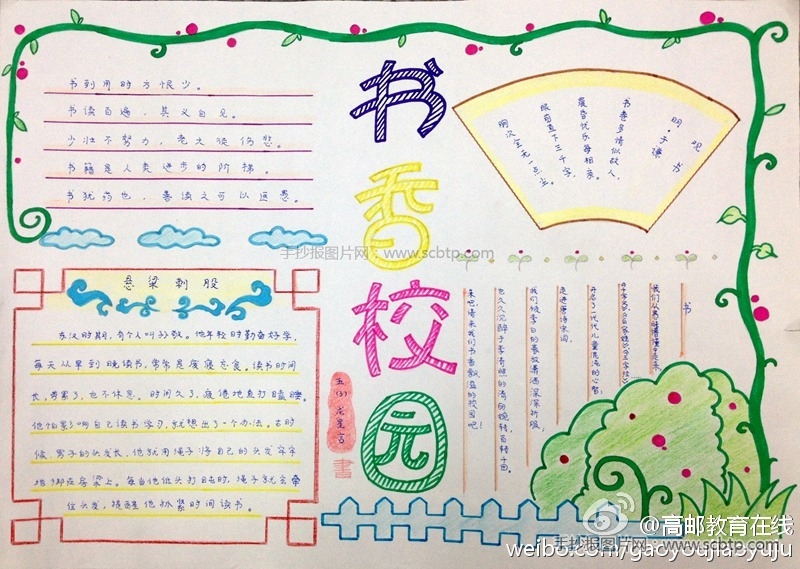 书到用时方恨少。
书读百遍，其义自见。
少壮不努力，老大徒伤悲。
书籍是人类进步的阶梯。
书犹药也，善读之可以医愚。
书香校园
观书
明·于谦
书卷多情似故人，
晨昏忧乐每相亲。
眼前直下三千字，
胸次全无一点尘。
手抄报图片网：www.scbtp.com
悬梁刺股
东汉时期，有个人叫孙敬。他年轻时勤奋好学，
每天从早到晚读书，常常是废寝忘食。读书时间
长，劳累了，也不休息。时间久了，疲倦地直打瞌睡。
他怕影响自己读书学习，就想出了一个办法。古时
候，男子的头发长，他就用绳子将自己的头发牢牢
地绑在房梁上。每当他低头打盹时，绳子就会牵
住头发，提醒他抓紧时间读书。
五(3)
书
书
我们从愚昧懵懂走来，
开启了一代代儿童混沌的心智；
走进唐诗宋词，
我们被李白的豪放潇洒深深折服，
也久久沉醉于李清照的清丽婉转、百转千回。
来吧！请来我们书香飘溢的校园吧！
@高邮教育在线
手抄报图片网：www.scbtp.com
weibo.com/gaoyoujiaoyuju